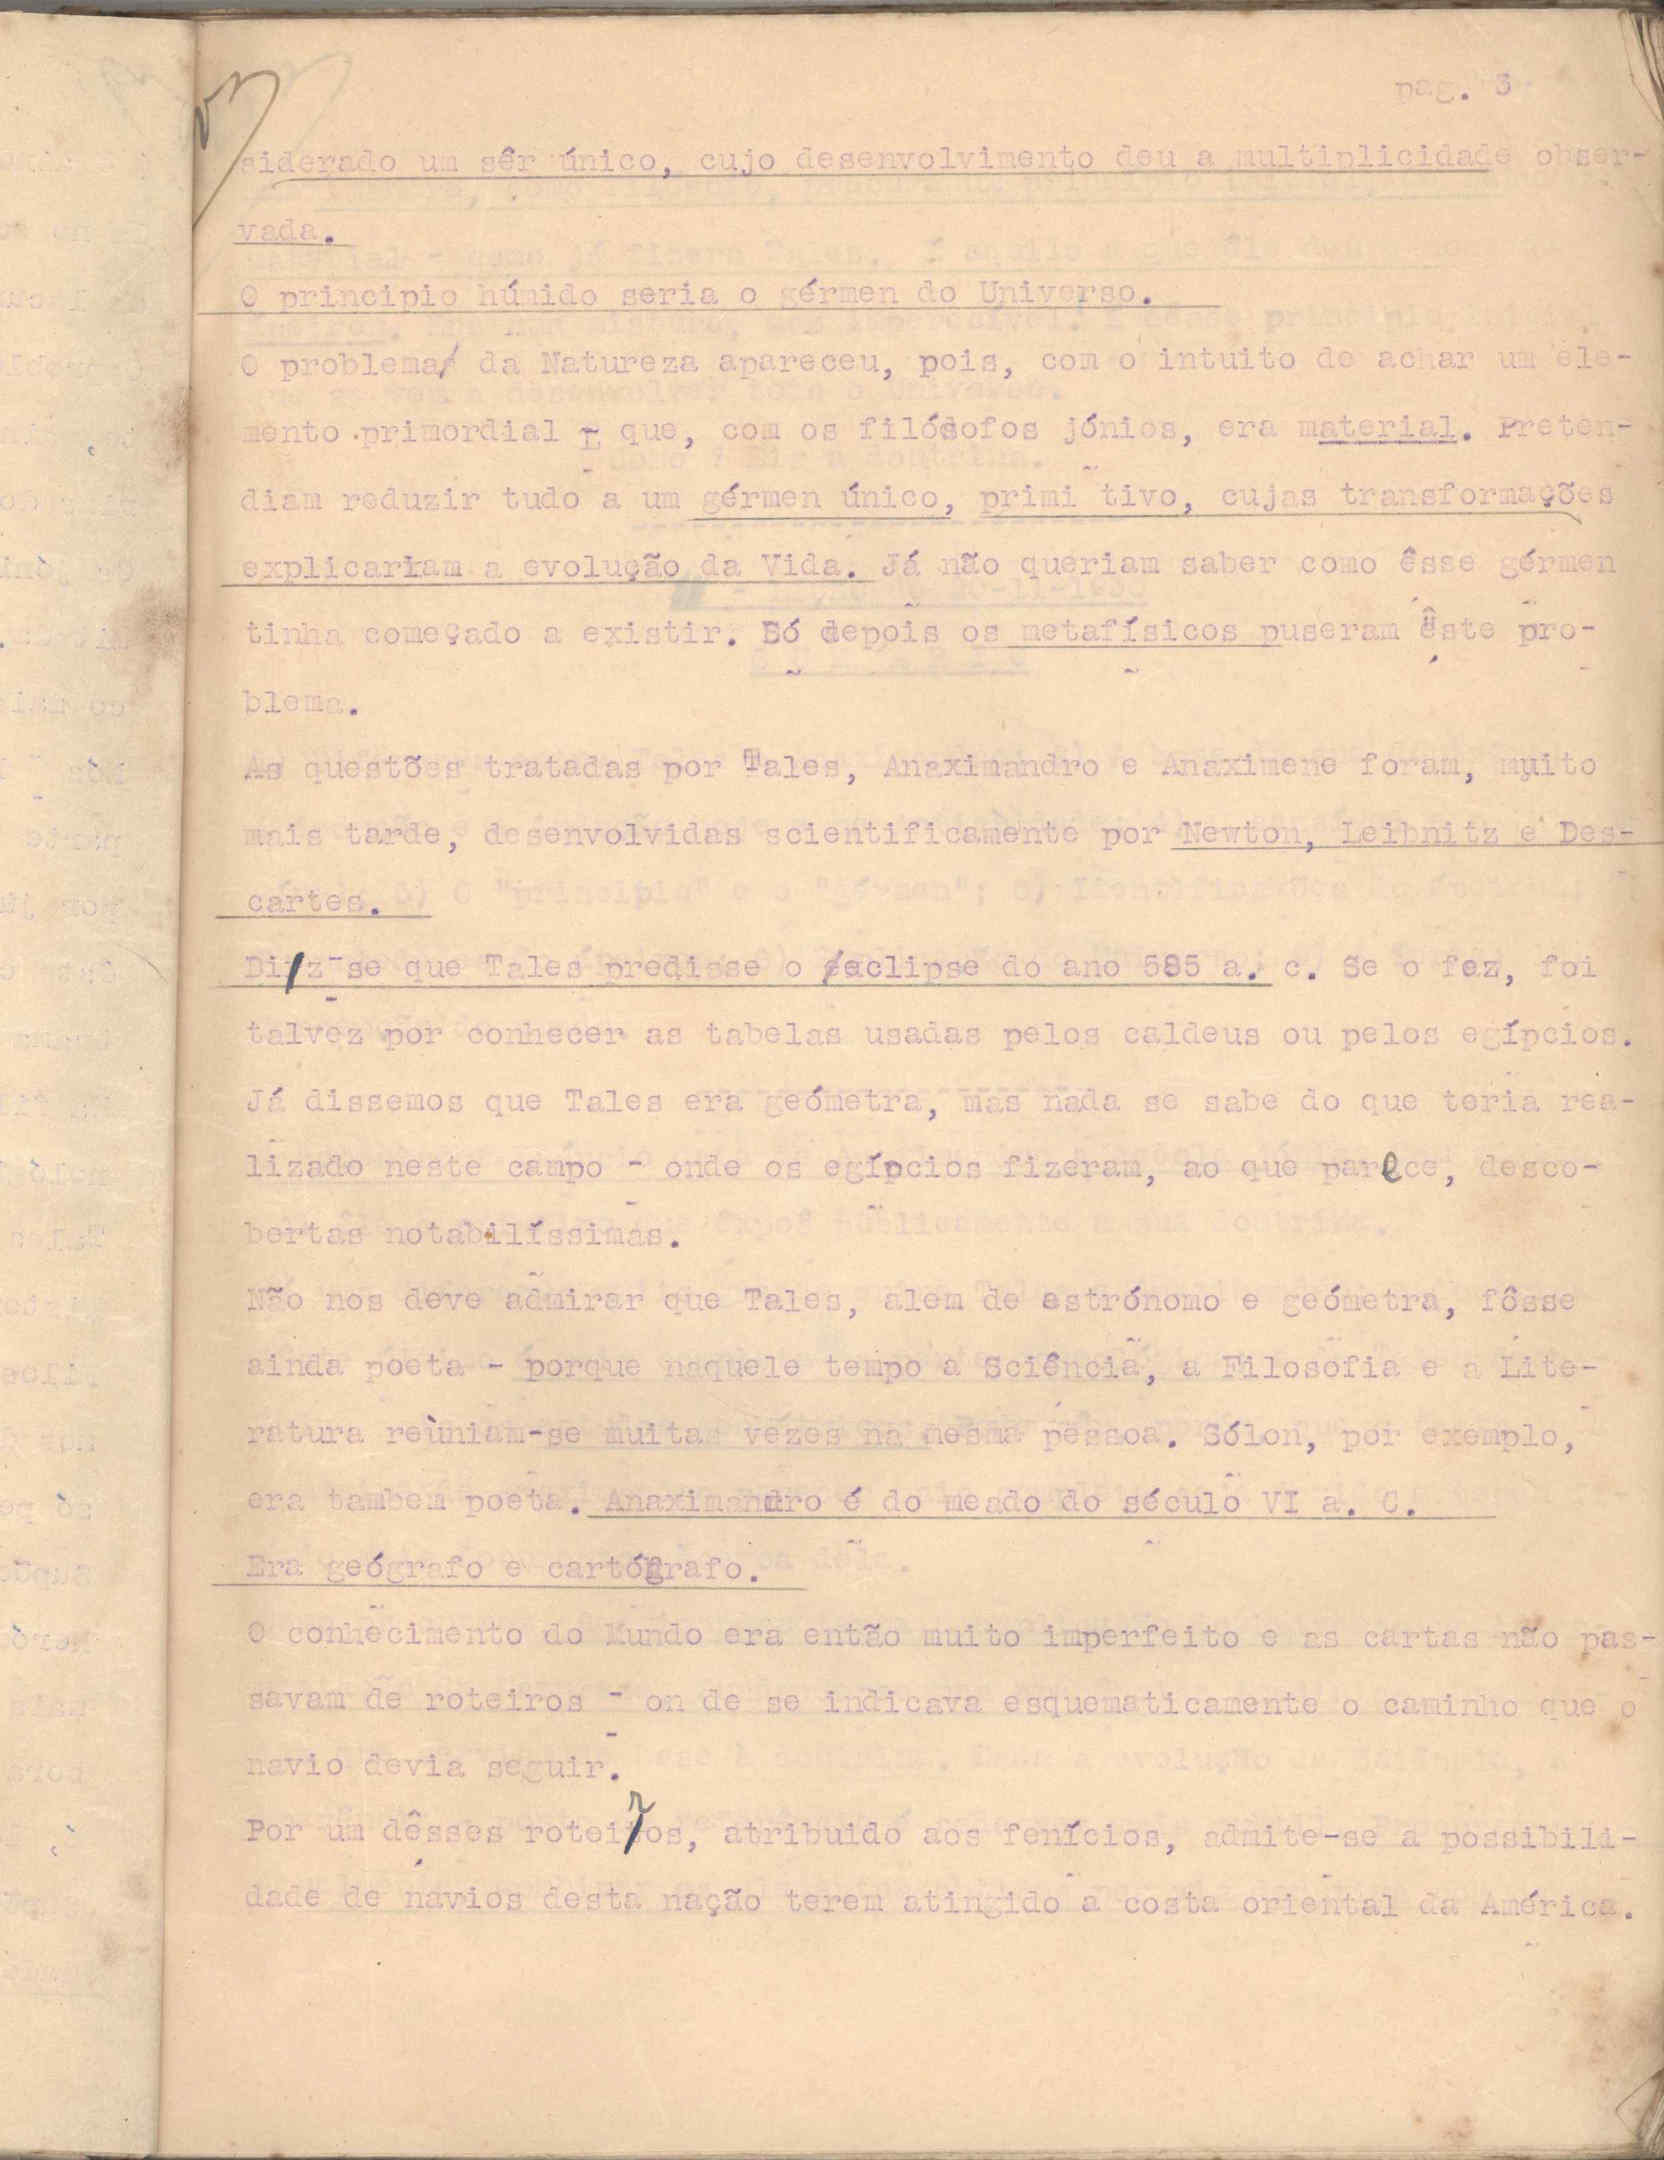 pag. 3
siderado um sêr único, cujo desenvolvimento deu a multiplicidade obser-
vada.
O principio húmido seria o gérmen do Universo.
O problema da Natureza apareceu, pois, com o intuito de achar um ele-
mento primordial - que, com os filósofos jónios, era material. Preten-
diam reduzir tudo a um gérmen único, primi tivo, cujas transformações
explicariam a evolução da Vida. Já não queriam saber como êsse gérmen
tinha começado a existir. Só depois os metafísicos puseram êste pro-
blema.
As questões tratadas por Tales, Anaximandro e Anaximene foram, muito
mais tarde, desenvolvidas scientificamente por Newton, Leibnitz e Des-
cartes.
Diz-se que Tales predisse o eclipse do ano 585 a. c. Se o fez, foi
talvez por conhecer as tabelas usadas pelos caldeus ou pelos egípcios.
Já dissemos que Tales era geómetra, mas nada se sabe do que teria rea-
lizado neste campo - onde os egípcios fizeram, ao que parece, desco-
bertas notabilíssimas.
Não nos deve admirar que Tales, alem de astrónomo e geómetra, fôsse
ainda poeta - porque naquele tempo a Sciência, a Filosofia e a Lite-
ratura reùniam-se muitas vezes na mesma pessoa. Sólon, por exemplo,
era tambem poeta. Anaximandro é do meado do século VI a. C.
Era geógrafo e cartógrafo.
O conhecimento do Mundo era então muito imperfeito e as cartas não pas-
savam de roteiros - on de se indicava esquematicamente o caminho que o
navio devia seguir.
Por um dêsses roteiros, atribuido aos fenícios, admite-se a possibili-
dade de navios desta nação terem atingido a costa oriental da América.